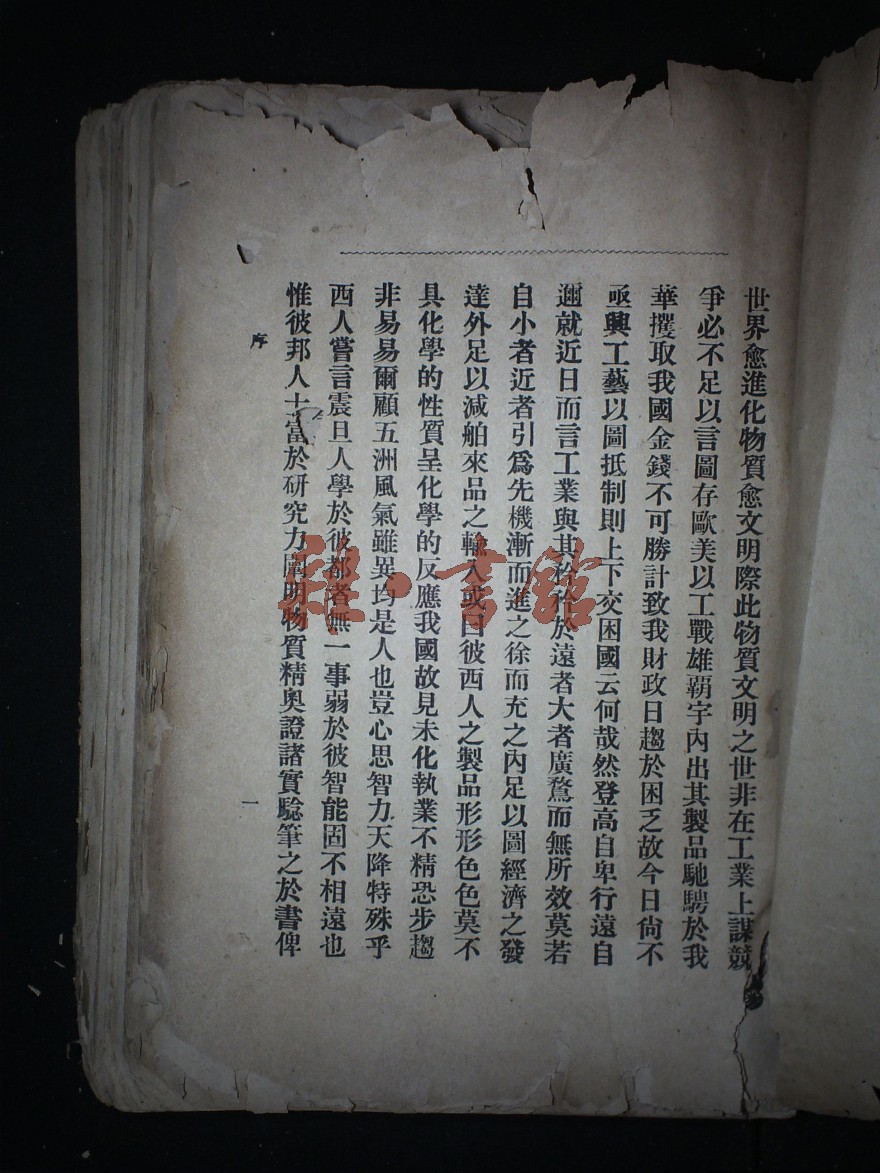 世界愈進化物質愈文明際此物質文明之世非在工業上謀競
爭必不足以言圖存歐美以工戰雄覇宇內出其製品馳騁於我
華攫取我國金錢不可勝計致我財政日趨於困乏故今日尙不
亟興工藝以圖抵制則上下交困國云何哉然登高自卑行遠自
邇就近日而言工業與其矜矜於遠者大者廣騖而無所效莫若
自小者近者引爲先機漸而進之徐而充之內足以圖經濟之發
達外足以減舶來品之輸入或曰彼西人之製品形形色色莫不
具化學的性質呈化學的反應我國故見未化執業不精恐步趨
非易易爾顧五洲風氣雖异均是人也豈心思智力天降特殊乎
西人嘗言震旦人學於彼都者無一事弱於彼智能固不相遠也
惟彼邦人士富於研究力闡明物質精奧證諸實騐筆之於書俾
序
一